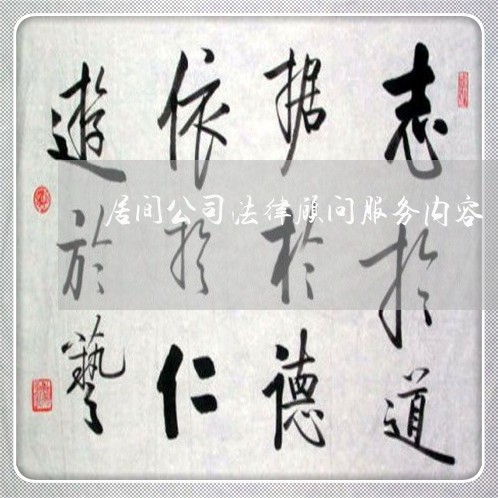 志扵道
据扵德
依扵仁
遊於藝
居间公司法律顾问服务内容